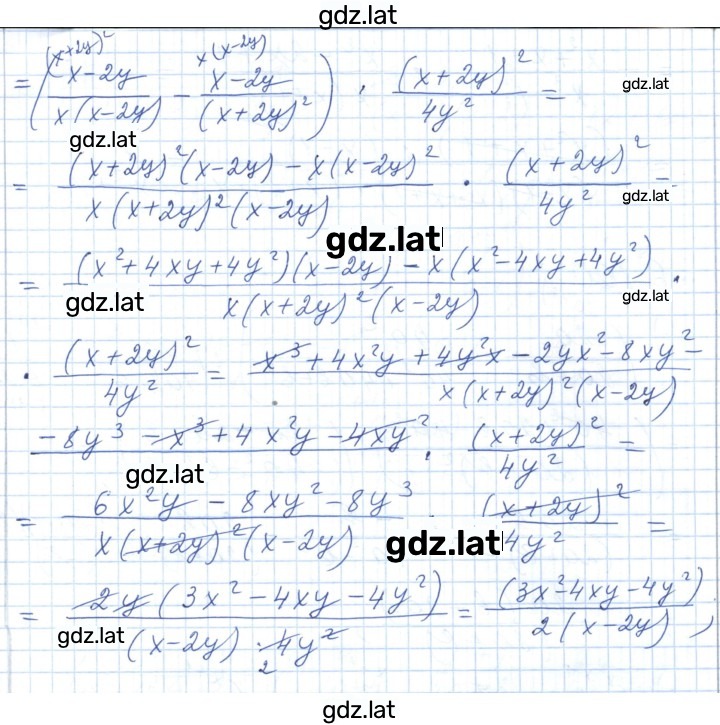 gdz.lat
(x+2y)² x(x-2y)
= ( (x-2y)/(x(x-2y)) - (x-2y)/((x+2y)²) ) · (x+2y)²/(4y²) = gdz.lat
gdz.lat
= ((x+2y)²(x-2y) - x(x-2y)²)/(x(x+2y)²(x-2y)) · (x+2y)²/(4y²) = gdz.lat
gdz.lat
= ((x²+4xy+4y²)(x-2y) - x(x²-4xy+4y²))/(x(x+2y)²(x-2y)) · gdz.lat
gdz.lat
· (x+2y)²/(4y²) = (x³+4x²y+4y²x-2yx²-8xy²-)/(x(x+2y)²(x-2y))
-8y³-x³+4x²y-4xy² · (x+2y)²/(4y²) =
gdz.lat
= (6x²y-8xy²-8y³)/(x(x+2y)²(x-2y)) · (x+2y)²/(4y²) =
gdz.lat
= (2y(3x²-4xy-4y²))/((x-2y)·4y²) = (3x²-4xy-4y²)/(2(x-2y)),
2
gdz.lat
gdz.lat